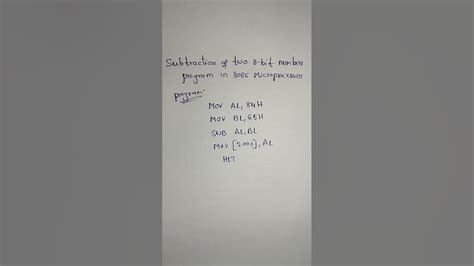 Subtraction of two 8-bit numbers
program in 8086 Microprocessor
program:
MOV AL, 84H
MOV BL, 65H
SUB AL, BL
MOV [2000], AL
HLT